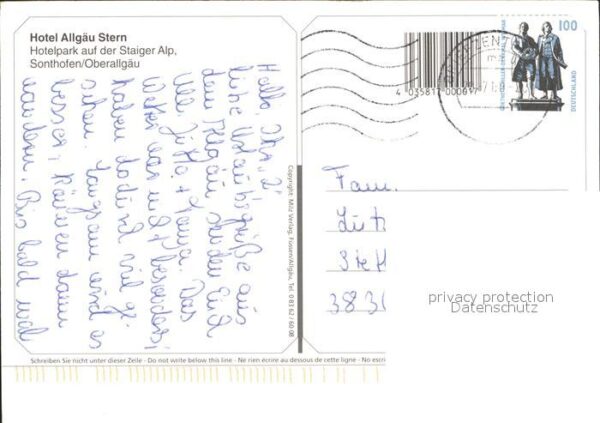 Hotel Allgäu Stern
Hotelpark auf der Staiger Alp,
Sonthofen/Oberallgäu
Hallo, Ihr 2!
liebe Urlaubsgrüße aus
dem Allgäu senden Euch
Das
Wetter war nicht besonders,
haben dadurch viel ge-
sehen. Langsam wird es
besser, können dann
wandern. Bis bald mal
Copyright: Milz Verlag, Füssen/Allgäu, Tel. 0 83 62 / 60 08
Schreiben Sie nicht unter dieser Zeile - Do not write below this line - Ne rien écrire au dessous de cette ligne - No escri
4 035817 000097
100
DEUTSCHLAND
Fam.
383
privacy protection
Datenschutz